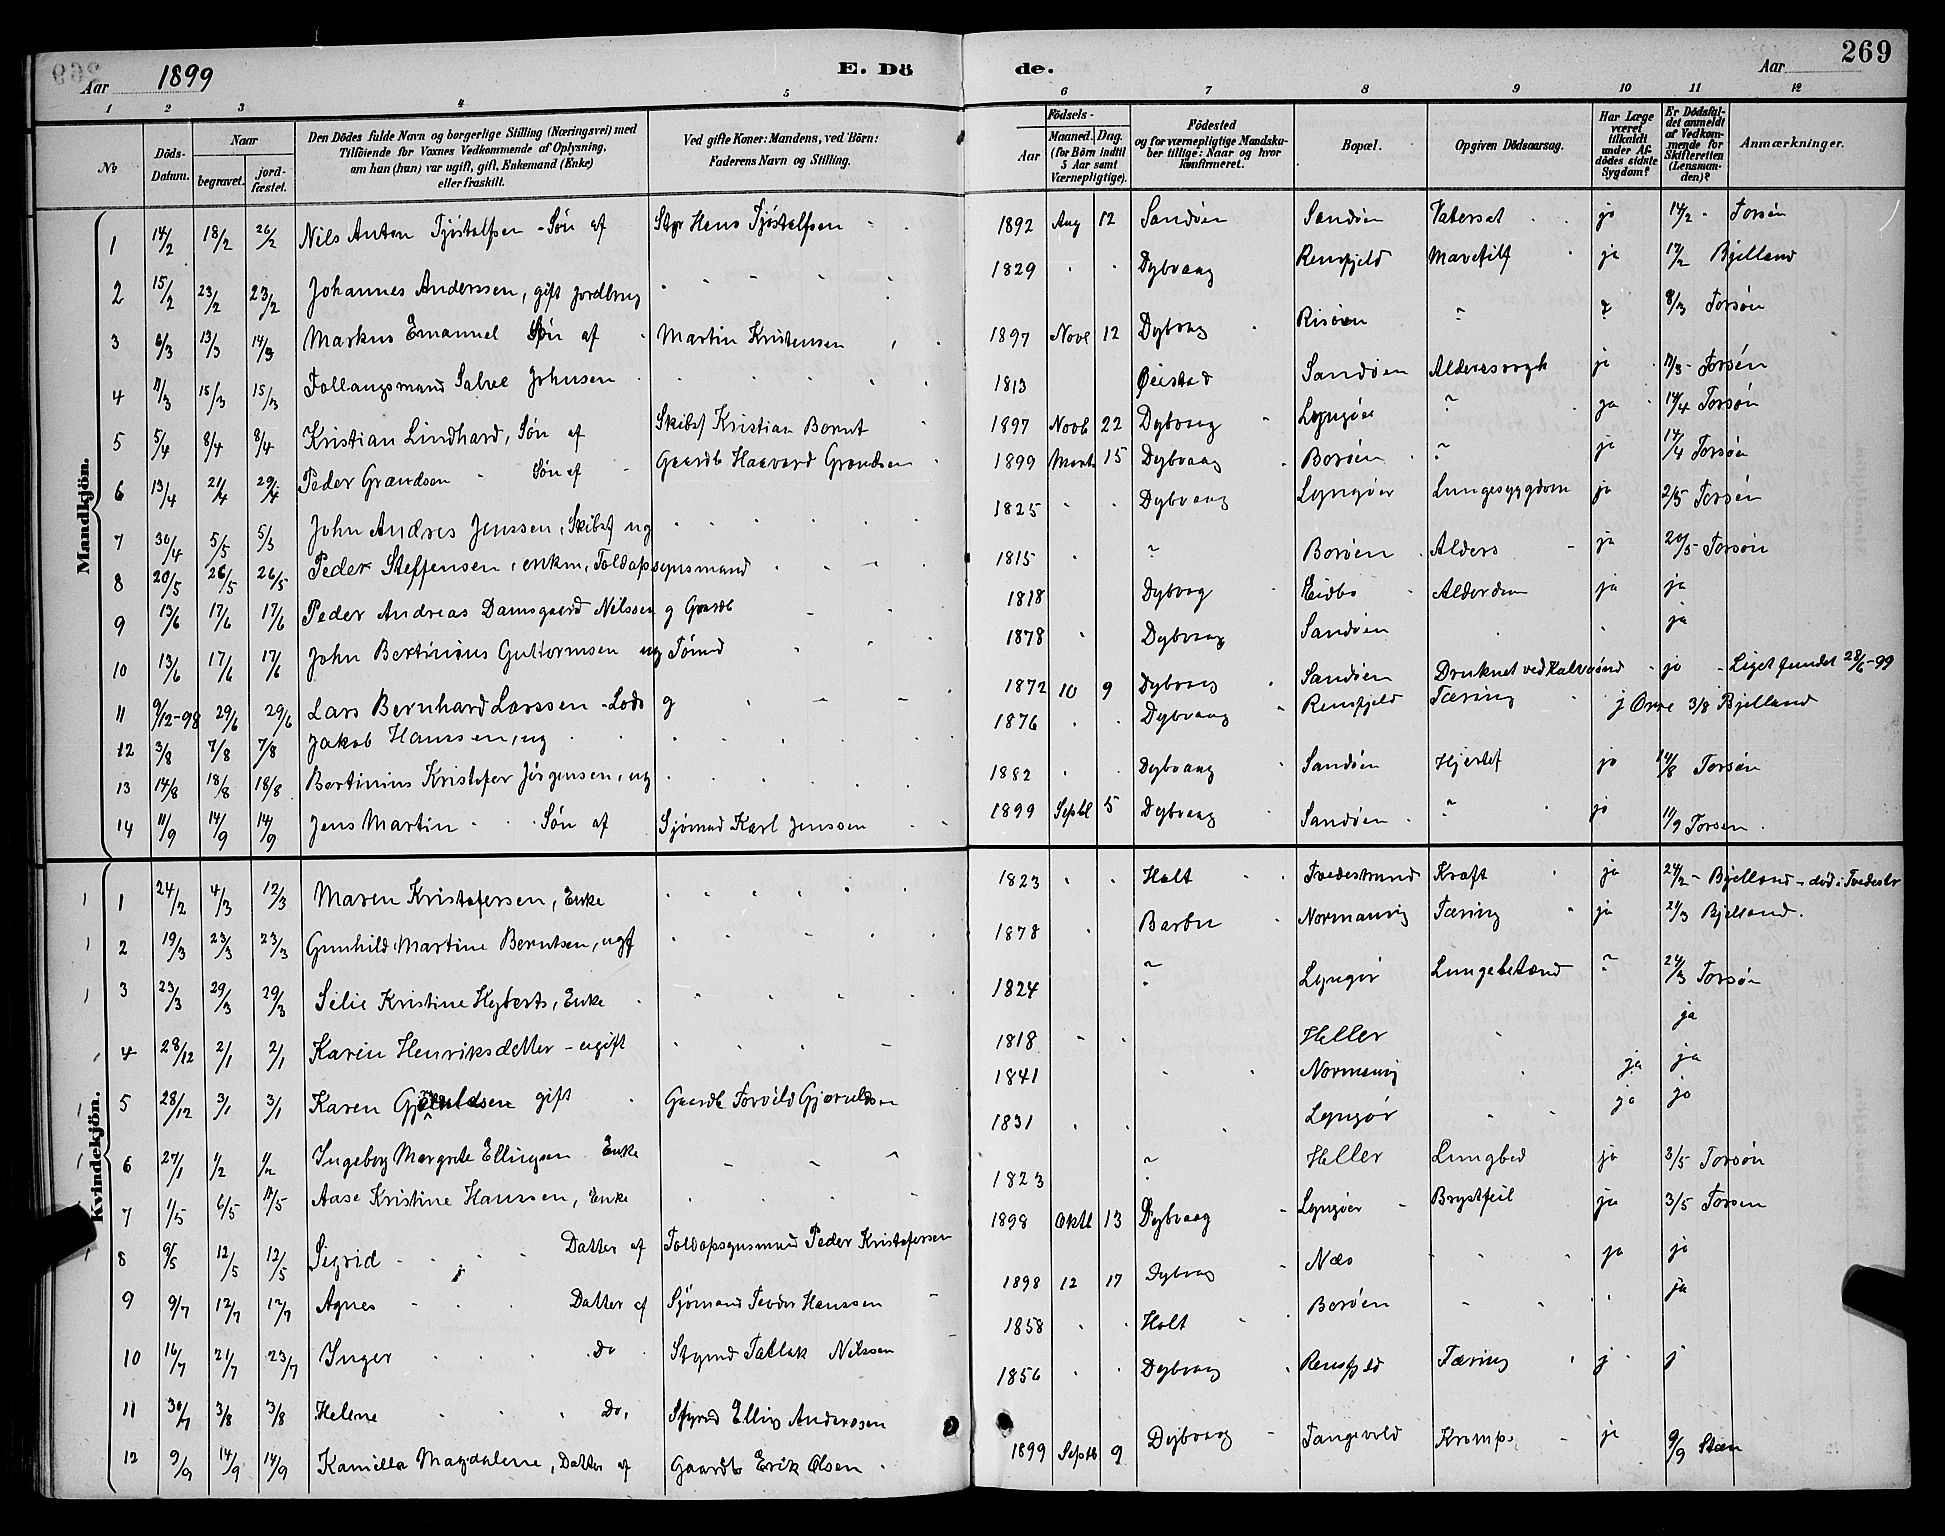 269
Aar 1899
E. Döde.
Aar
1 2 3 4 5 6 7 8 9 10 11 12
No
Döds-Datum.
Naar
begravet.
jordfæstet.
Den Dödes fulde Navn og borgerlige Stilling (Næringsvei) med
Tilföiende for Voxnes Vedkommende af Oplysning,
om han (hun) var ugift, gift, Enkemand (Enke)
eller fraskilt.
Ved gifte Koner: Mandens, ved Börn:
Faderens Navn og Stilling.
Födsels-
Aar
Maaned. Dag.
(for Börn indtil
5 Aar samt
Værnepligtige).
Födested
og for værnepligtige Mandska-
ber tillige: Naar og hvor
konfirmeret.
Bopæl.
Opgiven Dödsaarsag.
Har Læge
været
tilkaldt
under Af-
dödes sidste
Sygdom?
Er Dödsfal-
det anmeldt
af Vedkom-
mende for
Skifteretten
(Lensman-
den)?
Anmærkninger.
Mandkjön.
1 14/2 18/2 26/2 Nils Anton Tjöstolfsen - Sön af Styr Hens Tjöstolfsen 1892 Aug 12 Sandöen Sandöen Vatersot jo 14/2 - Torsön
2 15/2 23/2 23/2 Johannes Anderssen, gift jordbrug 1829 Dybvaag Rensfjeld Mavetilf ja 17/2 Bjelland
3 6/3 13/3 14/3 Markus Emanuel Sön af Martin Kristensen 1897 Novb 12 Dybvag Risöen ? ? 8/3 Torsön
4 11/3 15/3 15/3 Tollaugsmand Salve Johnsen 1813 Öiestad Sandöen Alderssvagh ja 11/3 - Torsön
5 5/4 8/4 8/4 Kristian Lindhard, Sön af Skibsf Kristian Bornt 1897 Novb 22 Dybvaag Lyngöer ? ja 14/4 Torsön
6 13/4 21/4 29/4 Peder Grandsen Sön af Gaardb Haavard Grandsen 1899 Marts 15 Dybvaag Boröen ? ja 14/4 Torsön
7 30/4 5/5 5/5 John Andres Jenssen, Skibsf ug 1825 Dybvaag Lyngöer Lungesyggdom jo 2/5 Torsön
8 20/5 26/5 26/5 Peder Steffensen, enkm, Toldopsynsmand 1815 ? Boröen Alders ja 20/5 Torsön
9 13/6 17/6 17/6 Peder Andreas Damsgaard Nilssen g Gaardb 1818 Dybvag Eidbo Alderdom ja ja
10 13/6 17/6 17/6 John Bertinius Guttormsen ug Sömd 1878 Dybvaag Sandöen ja
11 9/12-98 29/6 29/6 Lars Bernhard Larssen - Lods g 1872 10 9 Dybvaag Sandöen Druknet ved Kalvösund jo Liget fundet 28/6-99
12 3/8 7/8 7/8 Jakob Hanssen, ug 1876 Dybvaag Rensfjeld Tæring j Orre 3/8 Bjelland
13 14/8 18/8 18/8 Bertinius Kristofer Jörgensen, ug 1882 Dybvaag Sandöen Hjertef jo 14/8 Torsön
14 11/9 14/9 14/9 Jens Martin Sön af Sjömnd Karl Jenssen 1899 Septb 5 Dybvaag Sandöen ? jo 11/9 Torsen
Kvindekjön.
1 24/2 4/3 12/3 Maren Kristofersen, Enke 1823 Holt Tvedestrand Kræft ja 24/2 - Bjelland - död i Tvedestr
2 19/3 23/3 23/3 Gunhild Martine Berntsen, ugf 1878 Barbu Normanvig Tæring ja 21/3 Bjelland.
3 23/3 29/3 29/3 Silie Kristine Hyberts, Enke 1824 ? Lyngör Lungebetænd ? 24/3 Torsön
4 28/12 2/1 2/1 Karen Henriksdatter - ugift 1818 Heller ja
5 28/12 3/1 3/1 Karen Gjeruldsen gift Gaardb Torvild Gjeruldsen 1841 Normanvig ja ja
6 27/1 1/2 1/2 Ingeborg Margrete Ellingsen Enke 1831 Lyngör ja jo
7 1/5 6/5 11/5 Aase Kristine Hanssen, Enke 1823 ? Heller Lungbed ja 3/5 Torsön
8 9/5 12/5 12/5 Sigrid Datter af Toldopsynsmand Peder Kristofersen 1898 Oktb 13 Dybvaag Lyngöer Brystfeil ja 3/5 Torsen
9 9/7 12/7 12/7 Agnes Datter af Sjömand Teodor Hanssen 1898 12 17 Dybvag Næs ja jo
10 16/7 21/7 23/7 Inger Do Stymd Tallak Nilssen 1858 Holt Boröen ja
11 30/7 3/8 3/8 Helene Do, Styrmd Elling Anderssen 1856 Dybvaag Rensfjeld Tæring j j
12 9/9 14/9 14/9 Kamilla Magdalene, Datter af Gaardb Erik Olsen 1899 Septb 9 Dybvaag Tangevold Krampe ja 9/9 Steen